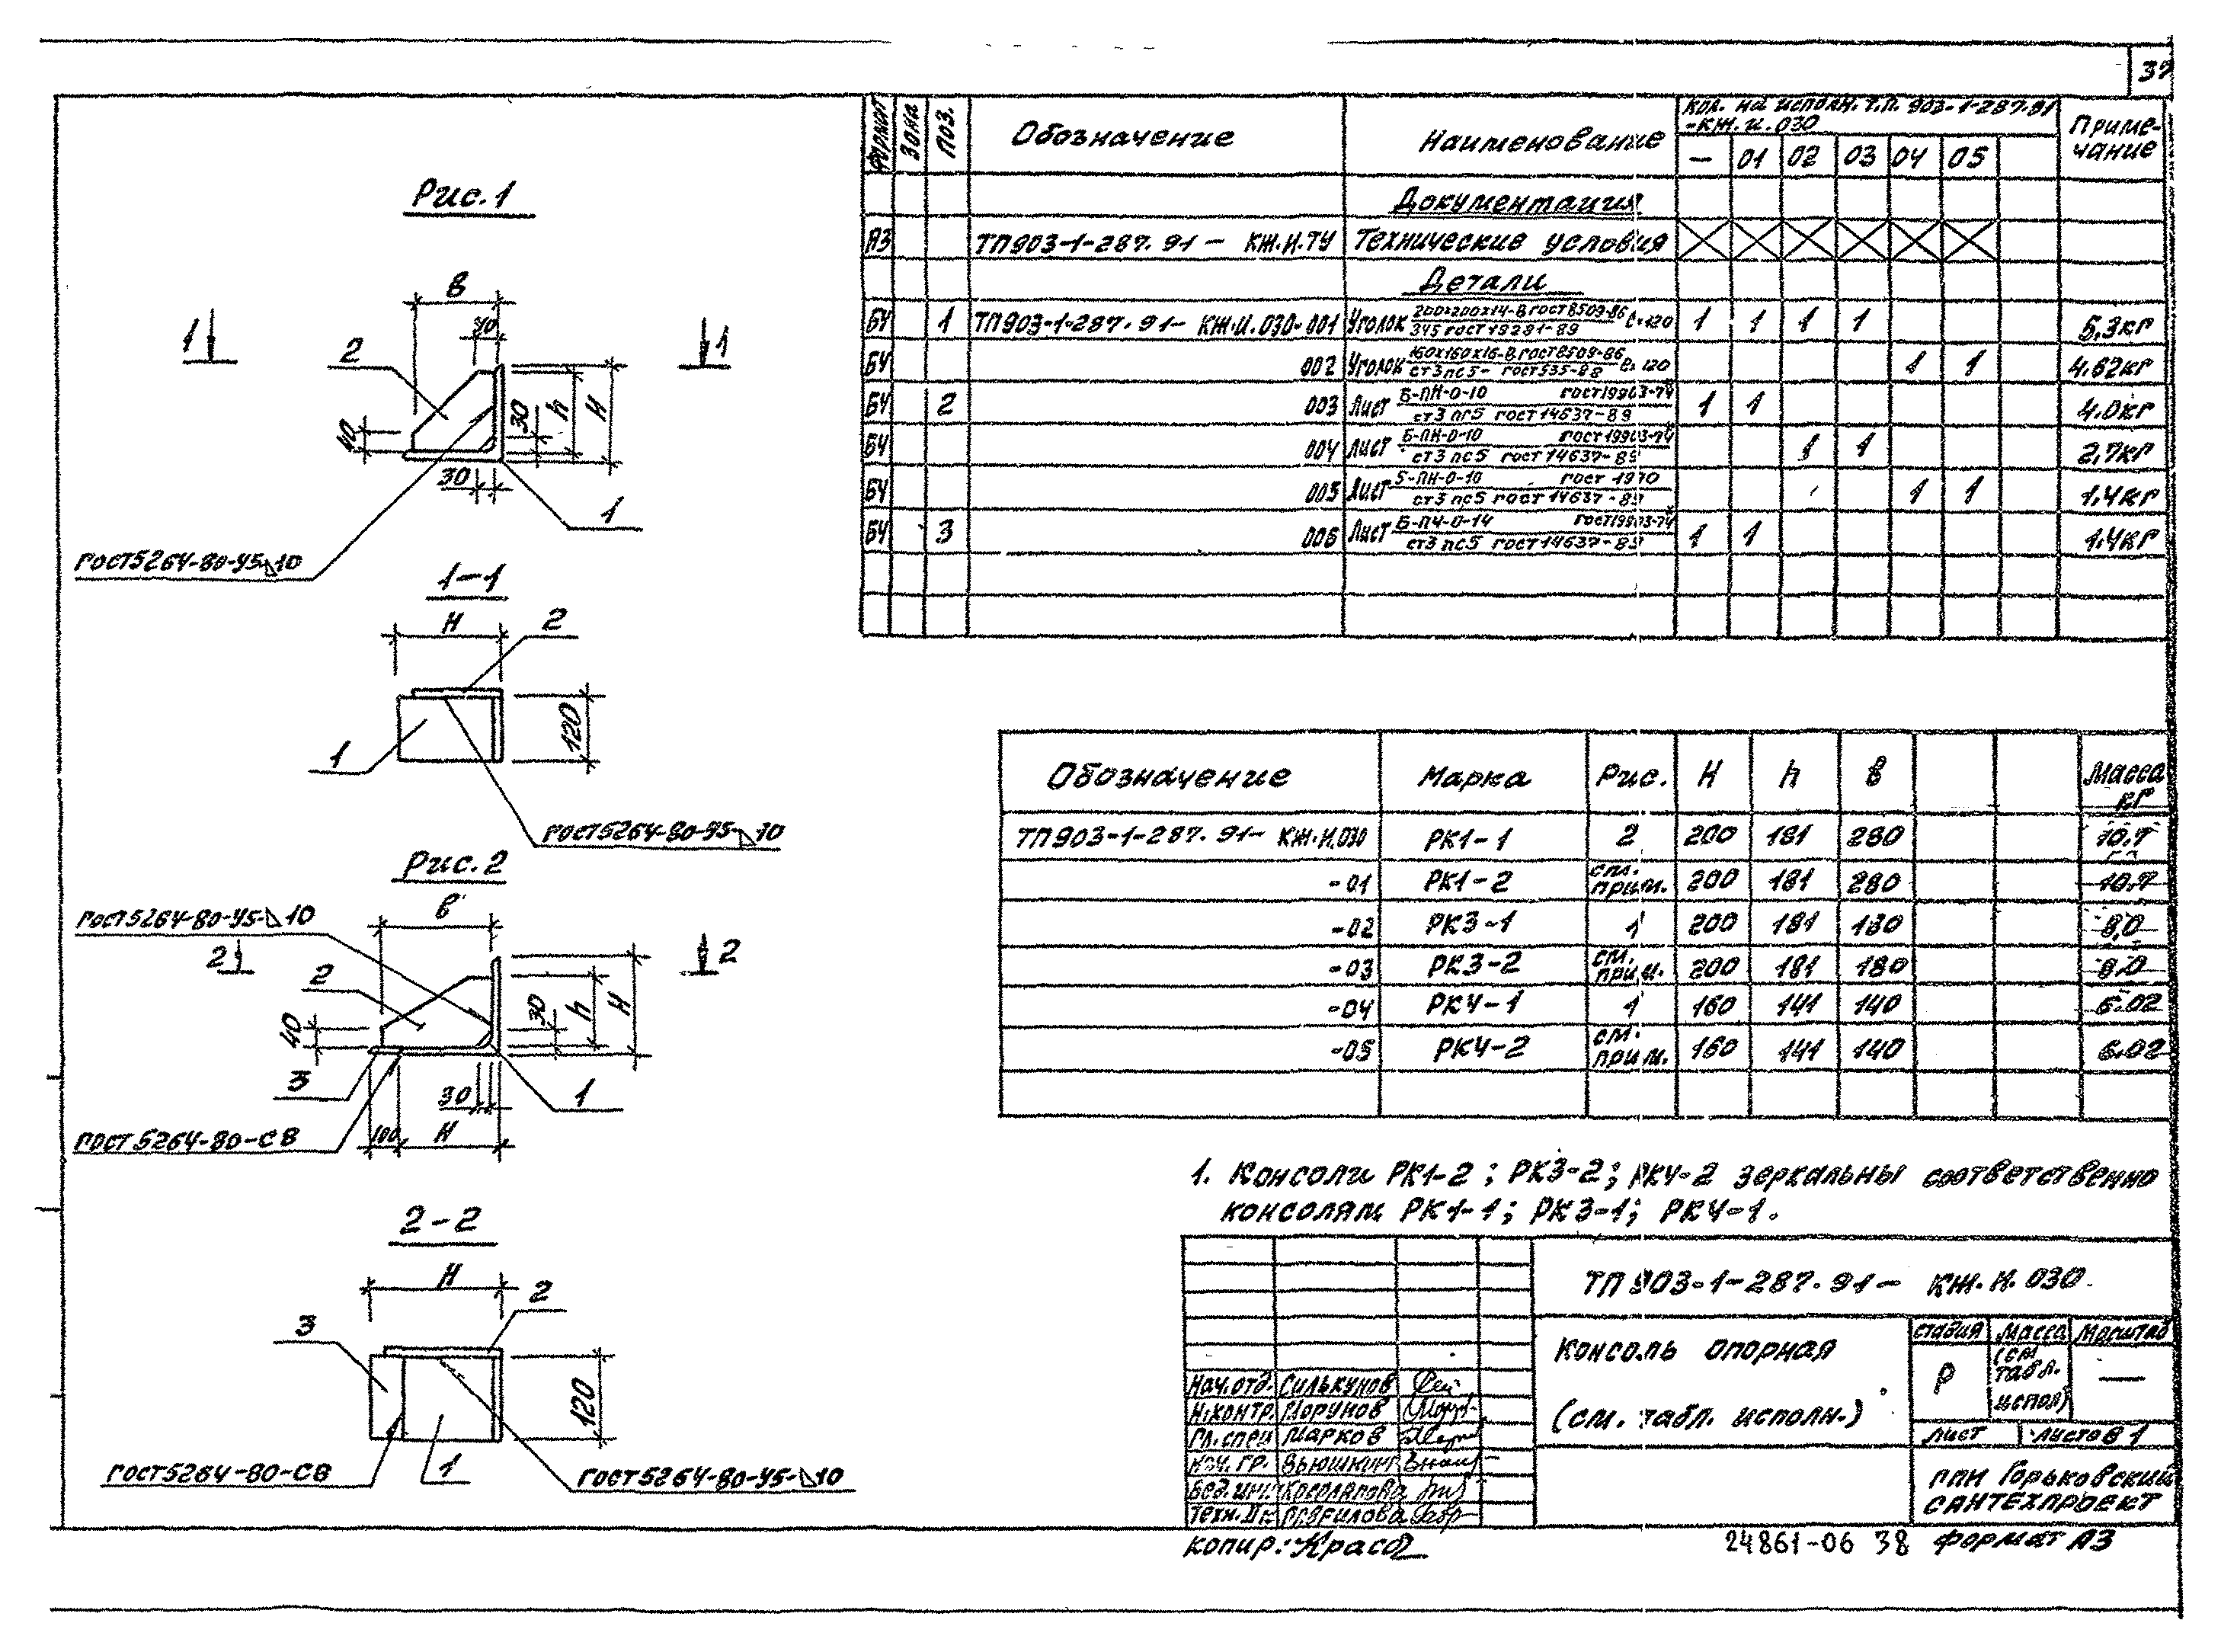 37
Рис. 1
В
40
1
1
2
40
30
h
H
30
1
ГОСТ 5264-80-У5-◺10
1-1
H
2
120
1
ГОСТ 5264-80-У5-◺10
Рис. 2
В
ГОСТ 5264-80-У5-◺10
2
2
2
40
30
h
H
3
30
1
100
H
ГОСТ 5264-80-С8
2-2
H
2
3
120
1
ГОСТ 5264-80-С8
ГОСТ 5264-80-У5-◺10
Формат Зона Поз. Обозначение Наименование Кол. на исполн. Т.П. 903-1-287.91 -КЖ.И.030 Приме-чание
— 01 02 03 04 05
Документация
А3 ТП903-1-287.91- КЖ.И.ТУ Технические условия
Детали
БЧ 1 ТП903-1-287.91- КЖ.И.030-001 Уголок 200х200х14-В ГОСТ 8509-86 / 345 ГОСТ 19281-89 ℓ=120 1 1 1 1 5,3кг
БЧ 002 Уголок 160х160х16-В ГОСТ 8509-86 / Ст3пс5- ГОСТ 535-88 ℓ=120 1 1 4,62кг
БЧ 2 003 Лист Б-ПН-О-10 ГОСТ 19903-74 / Ст3пс5 ГОСТ 14637-89 1 1 4.0кг
БЧ 004 Лист Б-ПН-О-10 ГОСТ 19903-74 / Ст3пс5 ГОСТ 14637-89 1 1 2,7кг
БЧ 005 Лист Б-ПН-О-10 ГОСТ / Ст3пс5 ГОСТ 14637-89 1 1 1,4кг
БЧ 3 006 Лист Б-ПЧ-О-14 ГОСТ 19903-74 / Ст3пс5 ГОСТ 14637-89 1 1 1,4кг
Обозначение Марка Рис. H h В Масса кг
ТП903-1-287.91- КЖ.И.030 РК1-1 2 200 181 280 10.7
-01 РК1-2 см. прим. 200 181 280 10.7
-02 РК3-1 1 200 181 180 8,0
-03 РК3-2 см. прим. 200 181 180 8,0
-04 РК4-1 1 160 141 140 6.02
-05 РК4-2 см. прим. 160 141 140 6.02
1. Консоли РК1-2; РК3-2; РК4-2 зеркальны соответственно
консолям РК1-1; РК3-1; РК4-1.
ТП 903-1-287.91- КЖ.И.030
Консоль опорная
(см. табл. исполн.)
Стадия Масса Масштаб
Р (см табл. исполн) —
Лист Листов 1
ГПИ Горьковский
САНТЕХПРОЕКТ
Нач.отд. Силькунов
Н.контр. Морунов
Гл.спец Марков
Нач. гр. Вьюшкин
Вед.инж.
Техн. Гаврилова
Копир.:
24861-06 38 Формат А3